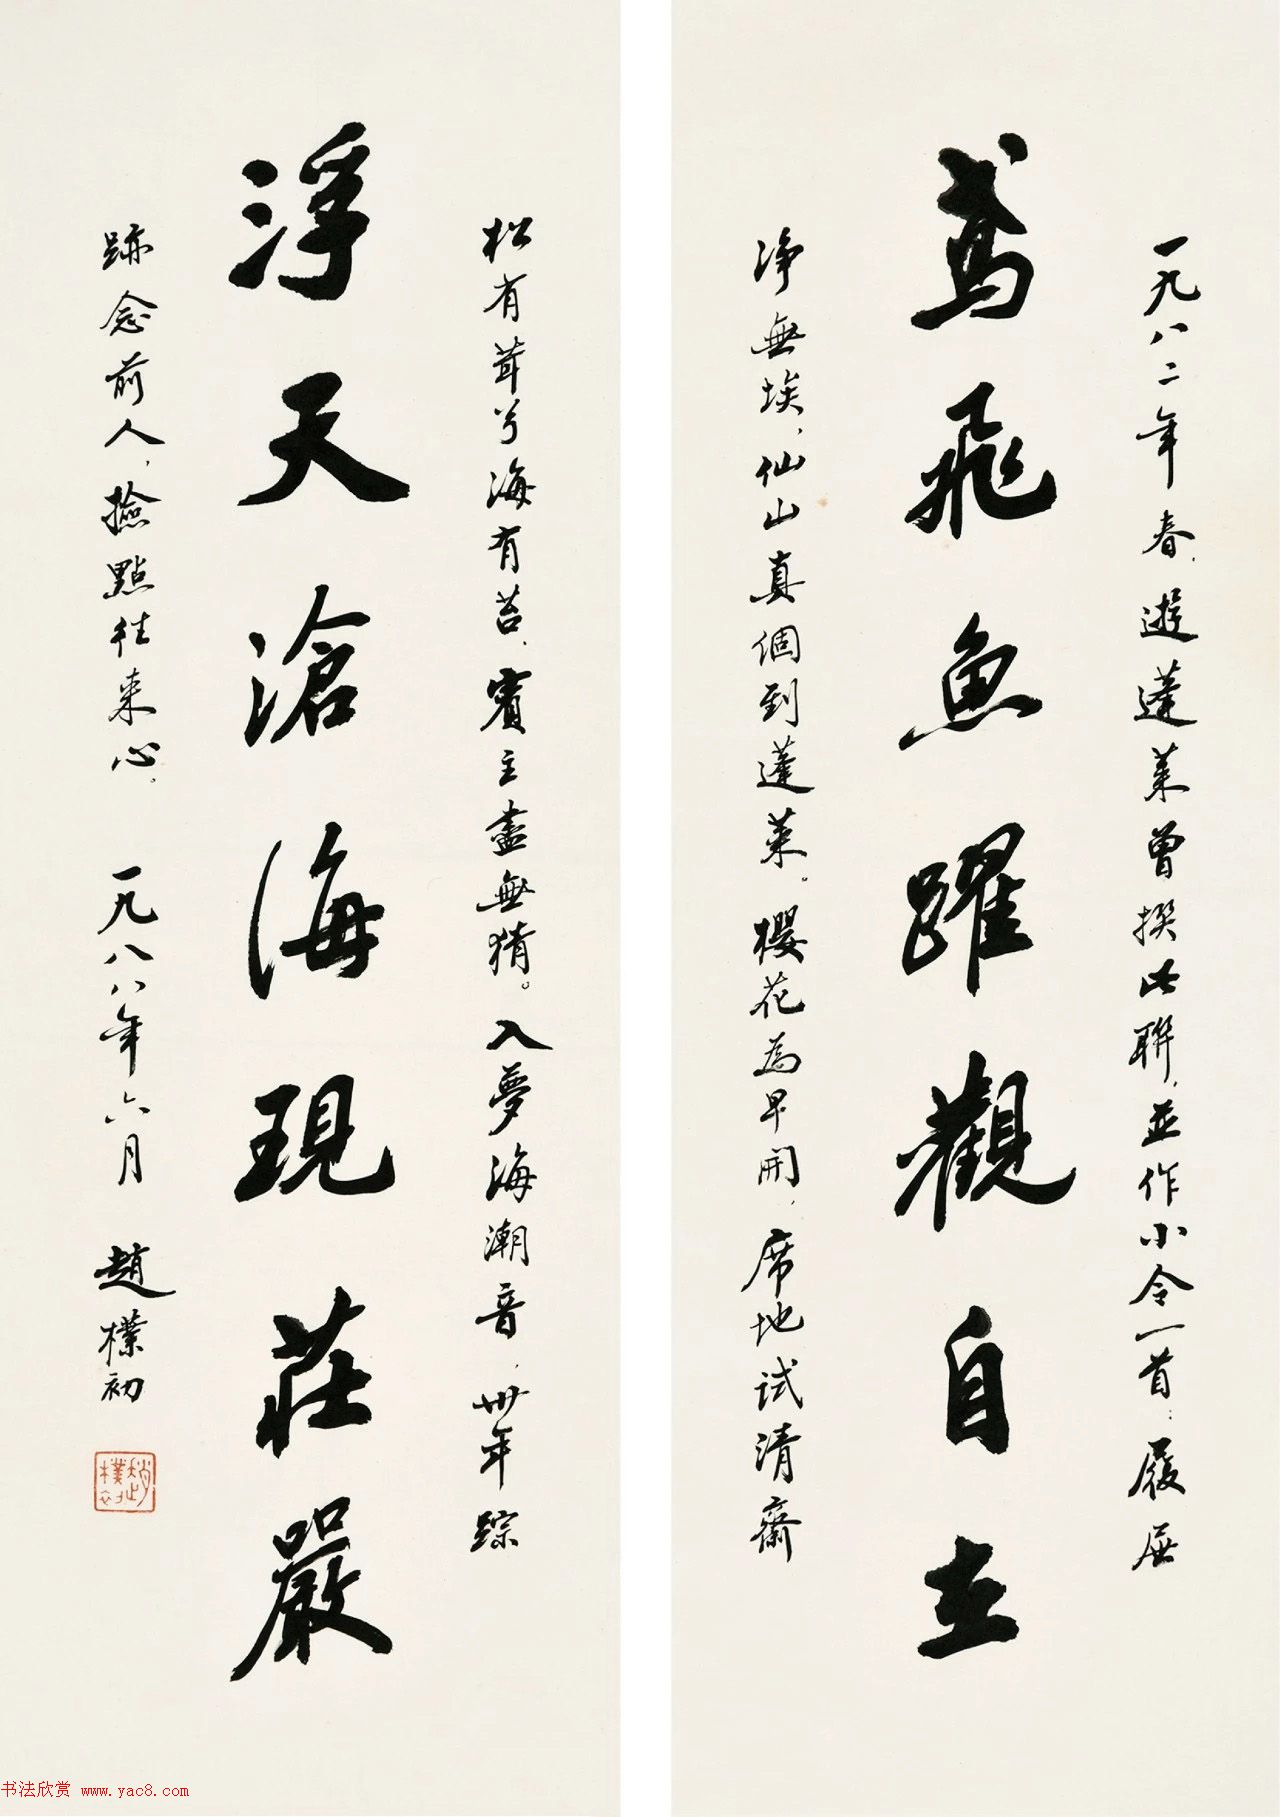 一九八二年春，遊蓬萊曾撰此聯，並作小令一首：履屐
鳶飛魚躍觀自在
净無埃，仙山真個到蓬萊。櫻花為早開，席地試清齋
松有茸兮海有苔，賓主盡無猜。入夢海潮音，卅年踪
浮天滄海現莊嚴
跡念前人，撿點往來心。一九八八年六月 趙樸初
趙樸初
书法欣赏 www.yac8.com